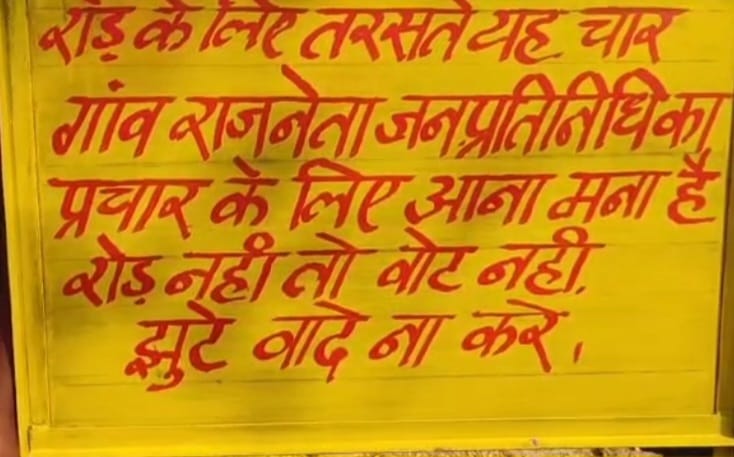 रोड़ के लिए तरसते यह चार
गांव राजनेता जनप्रतिनिधि का
प्रचार के लिए आना मना है
रोड़ नहीं तो वोट नही.
झुटे वादे ना करे.